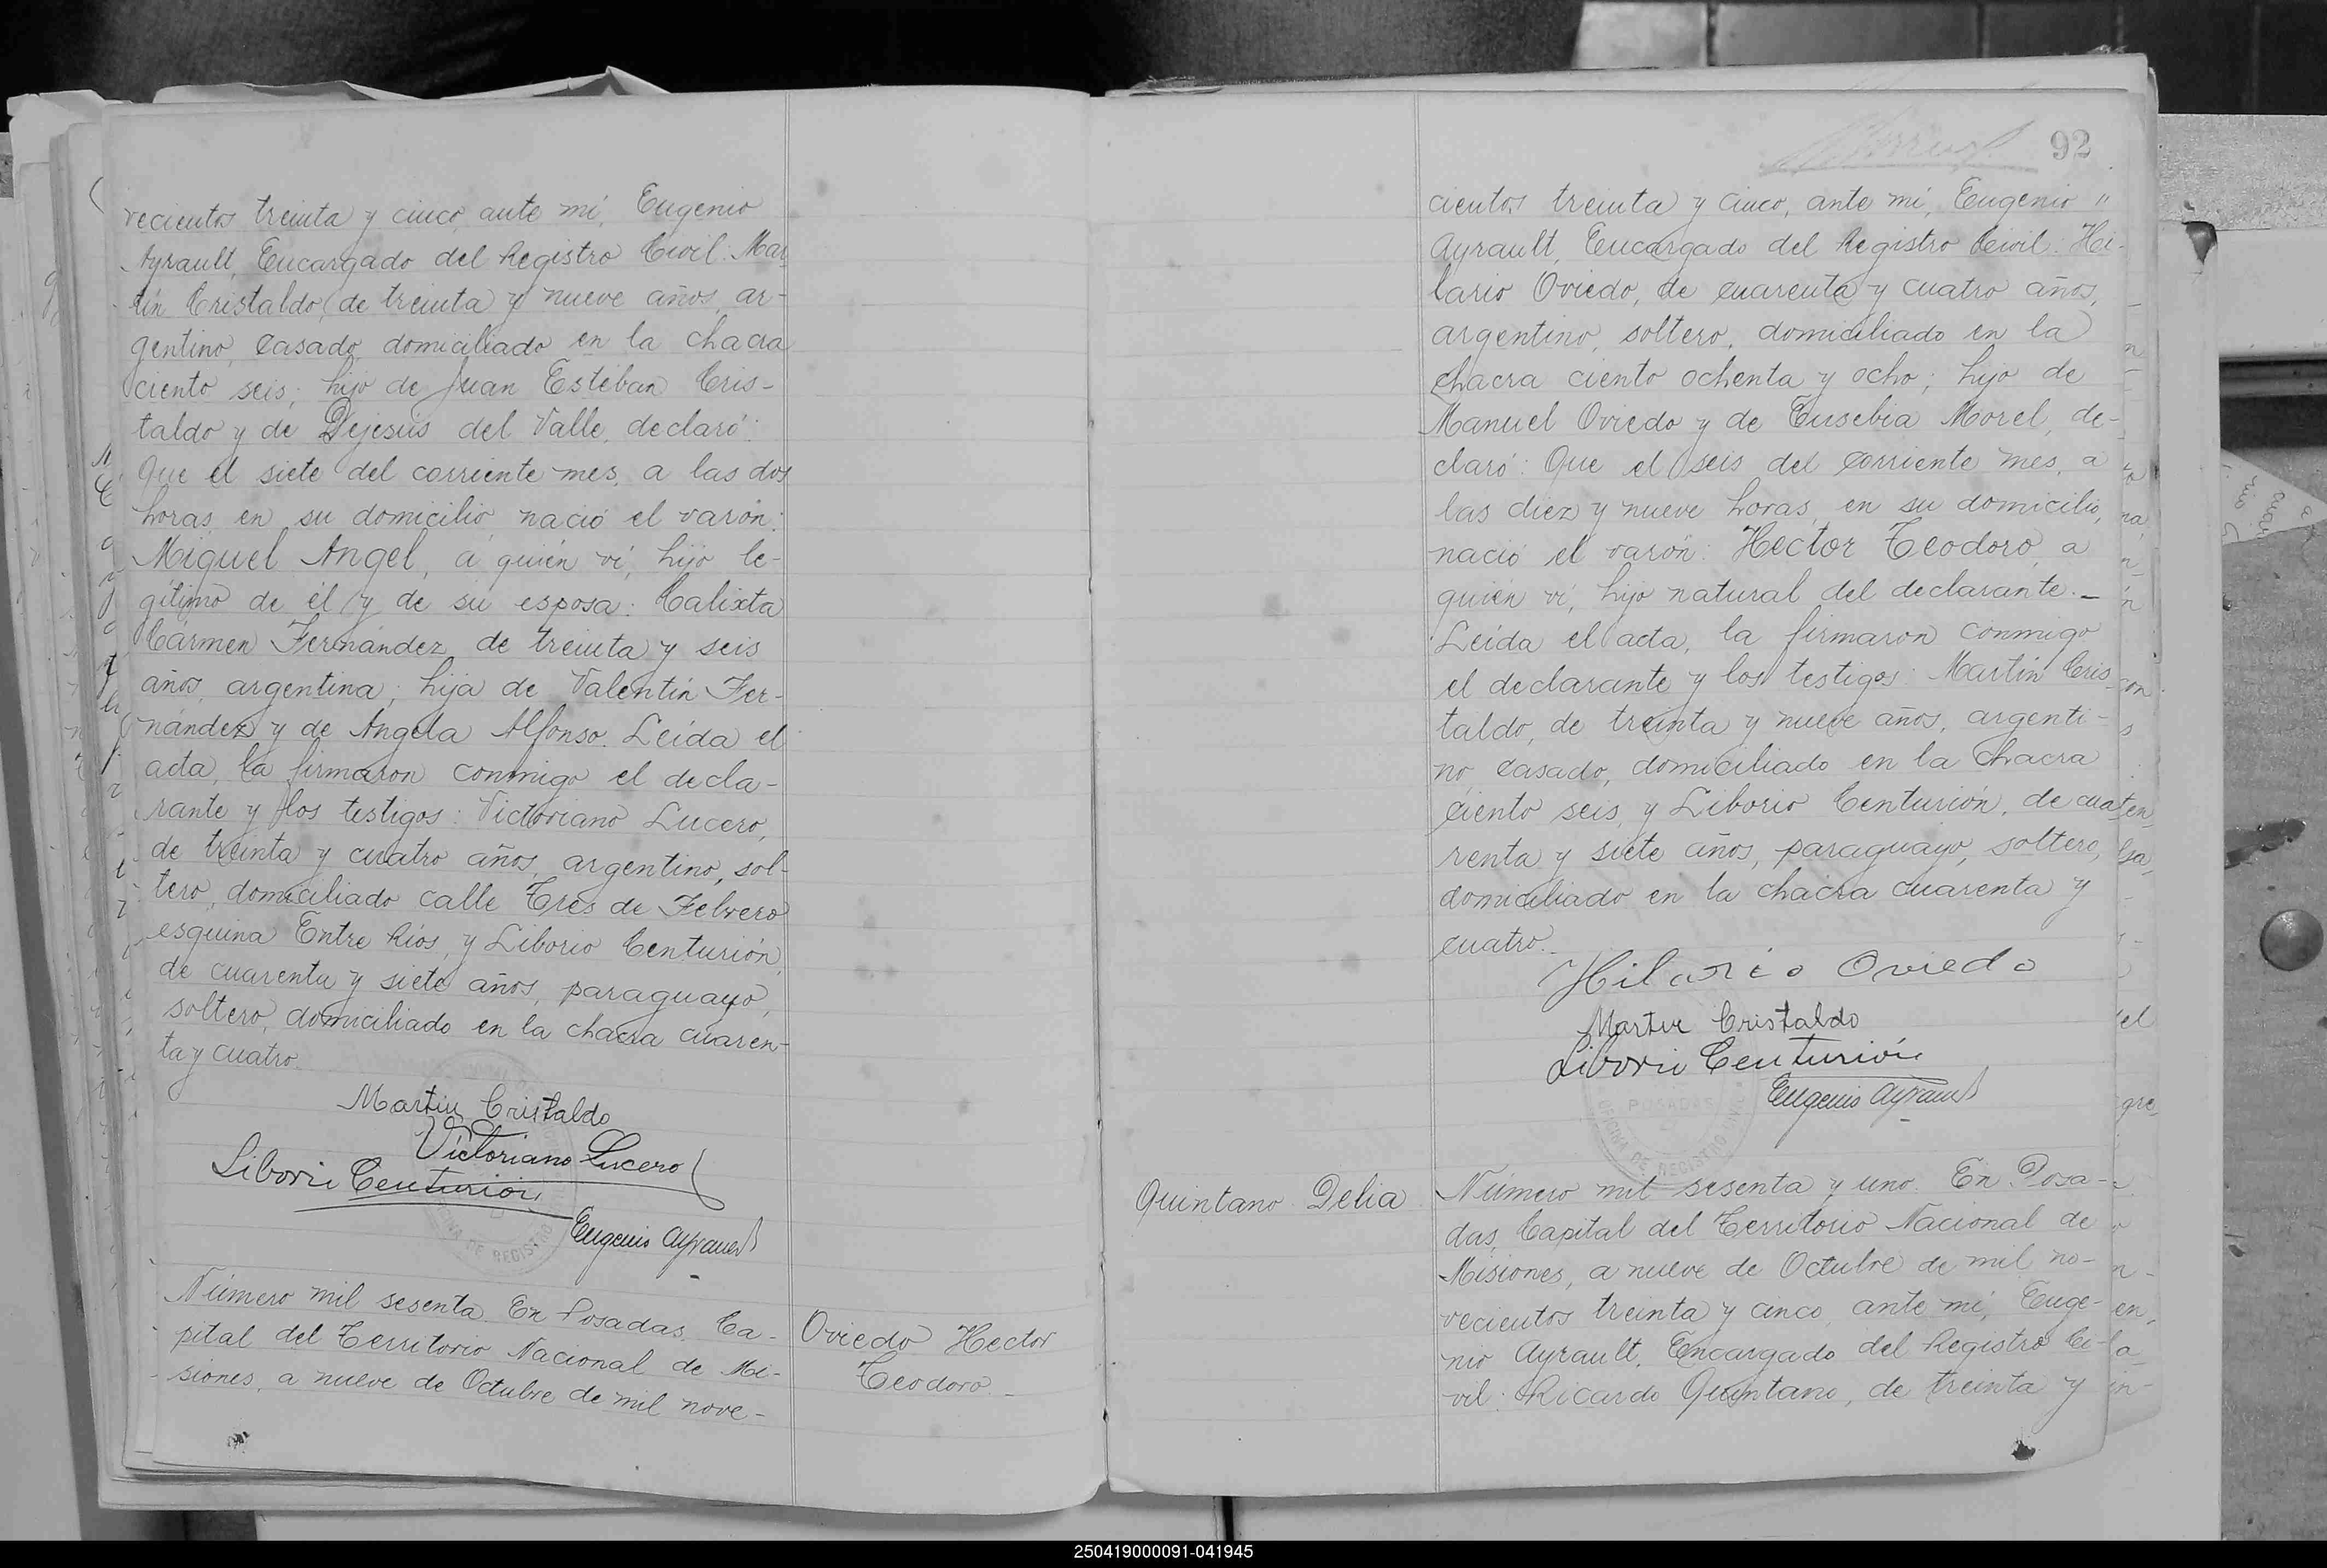 vecientos treinta y cinco, ante mí, Eugenio
Ayrault, Encargado del Registro Civil: Mar-
tín Cristaldo, de treinta y nueve años, ar-
gentino, casado, domiciliado en la chacra
ciento seis; hijo de Juan Estéban Cris-
taldo y de Dejesús del Valle, declaró:
Que el siete del corriente mes, a las dos
horas, en su domicilio, nació el varón:
Miguel Angel, a quién ví, hijo le-
gítimo de él y de su esposa: Calixta
Cármen Fernández, de treinta y seis
años, argentina; hija de Valentín Fer-
nández y de Angela Alfonso. Leída el
acta, la firmaron conmigo el decla-
rante y los testigos: Victoriano Lucero,
de treinta y cuatro años, argentino, sol-
tero, domiciliado calle Tres de Febrero
esquina Entre Ríos, y Liborio Centurión,
de cuarenta y siete años, paraguayo,
soltero, domiciliado en la chacra cuaren-
ta y cuatro.
Martin Cristaldo
Victoriano Lucero
Liborio Centurión
Eugenio Ayrault
Número mil sesenta. En Posadas, Ca-
pital del Territorio Nacional de Mi-
siones, a nueve de Octubre de mil nove-
Oviedo Hector
Teodoro.-
92
cientos treinta y cinco, ante mí, Eugenio "
Ayrault, Encargado del Registro Civil: Hi-
lario Oviedo, de cuarenta y cuatro años,
argentino, soltero, domiciliado en la
chacra ciento ochenta y ocho; hijo de
Manuel Oviedo y de Eusebia Morel, de-
claró: Que el seis del corriente mes, a
las diez y nueve horas, en su domicilio,
nació el varón: Hector Teodoro, a
quién ví, hijo natural del declarante.-
Leída el acta, la firmaron conmigo
el declarante y los testigos: Martín Cris-
taldo, de treinta y nueve años, argenti-
no, casado, domiciliado en la chacra
ciento seis, y Liborio Centurión, de cua-
renta y siete años, paraguayo, soltero,
domiciliado en la chacra cuarenta y
cuatro.-
Hilario Oviedo
Martin Cristaldo
Liborio Centurión
Eugenio Ayrault
POSADAS
OFICINA DE REGISTRO CIVIL
Quintano Delia
Número mil sesenta y uno. En Posa-
das, Capital del Territorio Nacional de
Misiones, a nueve de Octubre de mil no-
vecientos treinta y cinco, ante mí, Euge-
nio Ayrault, Encargado del Registro Ci-
vil: Ricardo Quintano, de treinta y
250419000091-041945